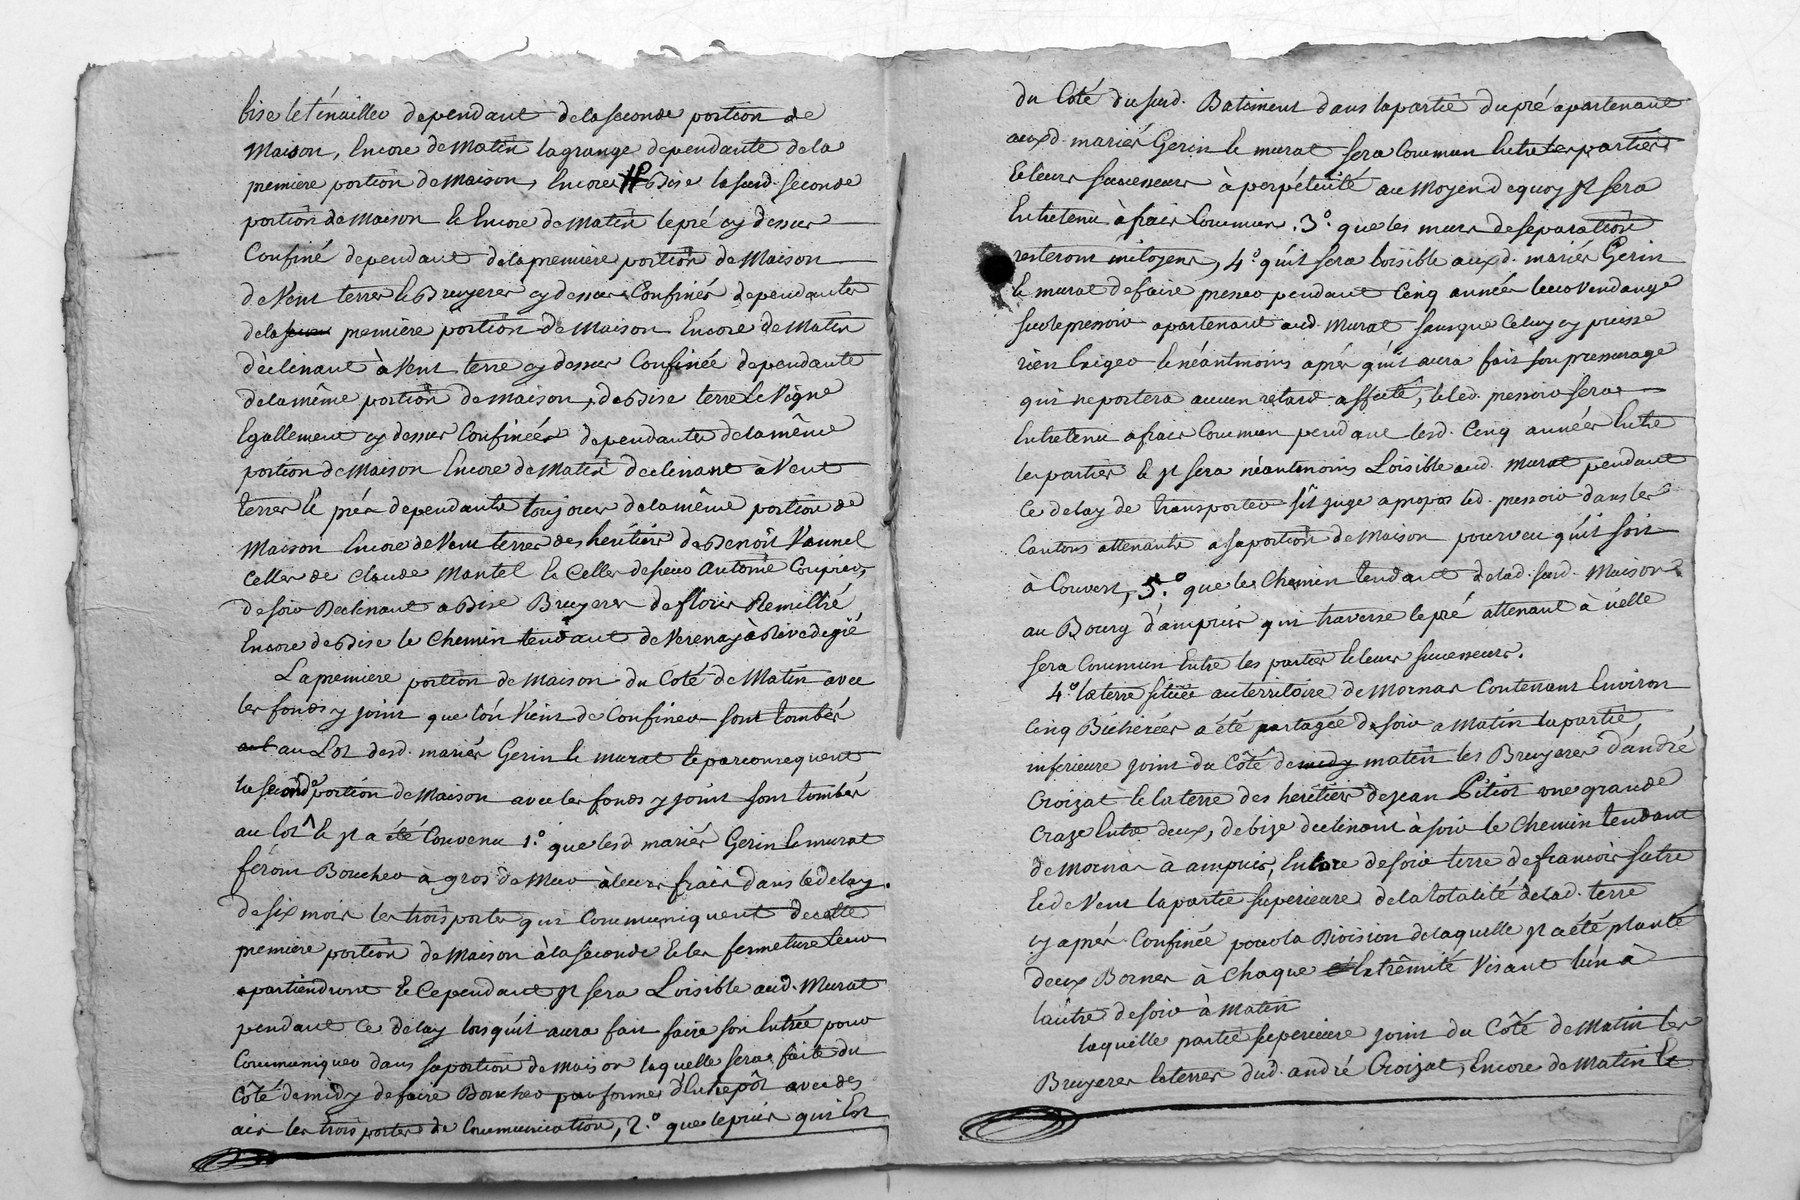 bise le ténailler dependant de la seconde portion de
Maison, Encore de Matin la grange dependante de la
premiere portion de Maison, Encore Bise la susd. seconde
portion de Maison & Encore de Matin le pré cy dessus
Confiné dependant de la premiere portion de Maison
de Vent terres & Bruyeres cy dessus Confinés dependantes
de la premiere portion de Maison Encore de Matin
déclinant à Vent terre cy dessus Confinée dependante
de la même portion de maison, de Bise terre & Vigne
Egallement cy dessus Confinées dependantes de la même
portion de Maison Encore de Matin declinant à Vent
terres & prés dependants toujours de la même portion de
Maison Encore de Vent terres des héritiers de Benoît Vannel
Celles de Claude Mantel & Celles de sieur Antoine Coupier,
de soir Declinant a Bise Bruyeres de floris Remillié
Encore de Bise le Chemin tendant de Verenay à Rivedegié
La premiere portion de Maison du Coté de Matin avec
les fonds y joint que l'on Vient de Confiner sont tombés
au Lot desd. mariés Gerin & murat & par consequent
la second.e portion de Maison avec les fonds y joint sont tombés
au lot ^ & Jl a été Convenu 1.° que lesd mariés Gerin & murat
féront Boucher à gros de Mur à leurs frais dans le delay
de six mois les trois portes qui Communiquent de cette
premiere portion de Maison à la seconde & les fermetures leur
apartiendront & Cependant Jl sera Loisible aud. Murat
pendant Ce delay lorsqu'il aura fait faire son Entrée pour
Communiquer dans sa portion de Maison laquelle sera faite du
Côté de midy de faire Boucher par forme d'Entrepôt avec des
ais les trois portes de Communication, 2.° que le puis qui Est
du Coté du sud. Batiment dans la partie du pré apartenant
auxd. mariés Gerin & murat sera Commun Entre les parties
& leurs successeurs à perpétuité au Moyen de quoy Jl sera
Entretenu à frais Communs. 3.° que les murs de séparation
resteront mitoyens, 4.° qu'il sera loisible auxd. mariés Gerin
& murat de faire presser pendant Cinq années leur Vendange
sur le pressoir apartenant aud. Murat sans que Celuy cy puisse
rien Exiger & néantmoins aprés qu'il aura fait son pressurage
qui ne portera aucun retard affecté, & led. pressoir sera
Entretenu a frais Commun pendant lesd. Cinq années Entre
les parties & Jl sera néantmoins Loisible aud. Murat pendant
Ce delay de transporter s'il juge a propos led. pressoir dans les
Cantons attenants a sa portion de Maison pourveu qu'il soit
à Couvert, 5.° que le Chemin tendant de lad. susd. Maison
au Bourg d'ampuis qui traverse le pré attenant à icelle
sera Commun Entre les parties & leurs successeurs.
4.° la terre située au territoire de Mornas Contenant Environ
Cinq Bicherées a été partagée de soir a Matin la partie
inferieure joint du Côté de midy matin les Bruyeres d'andré
Croizat & la terre des heritiers de jean Pitiot une grande
Craze Entre deux, de bize declinant à soir le Chemin tendant
de Mornas à ampuis, Encore de soir terre de francois satre
& de Vent la partie superieure de la totalité de lad. terre
cy aprés Confinée pour la Division de laquelle Jl a été planté
deux Bornes à Chaque Extrêmité Visant l'un à
l'autre de soir à Matin
laquelle partie superieure joint du Côté de Matin les
Bruyeres & terres dud. andré Croizat, Encore de Matin &